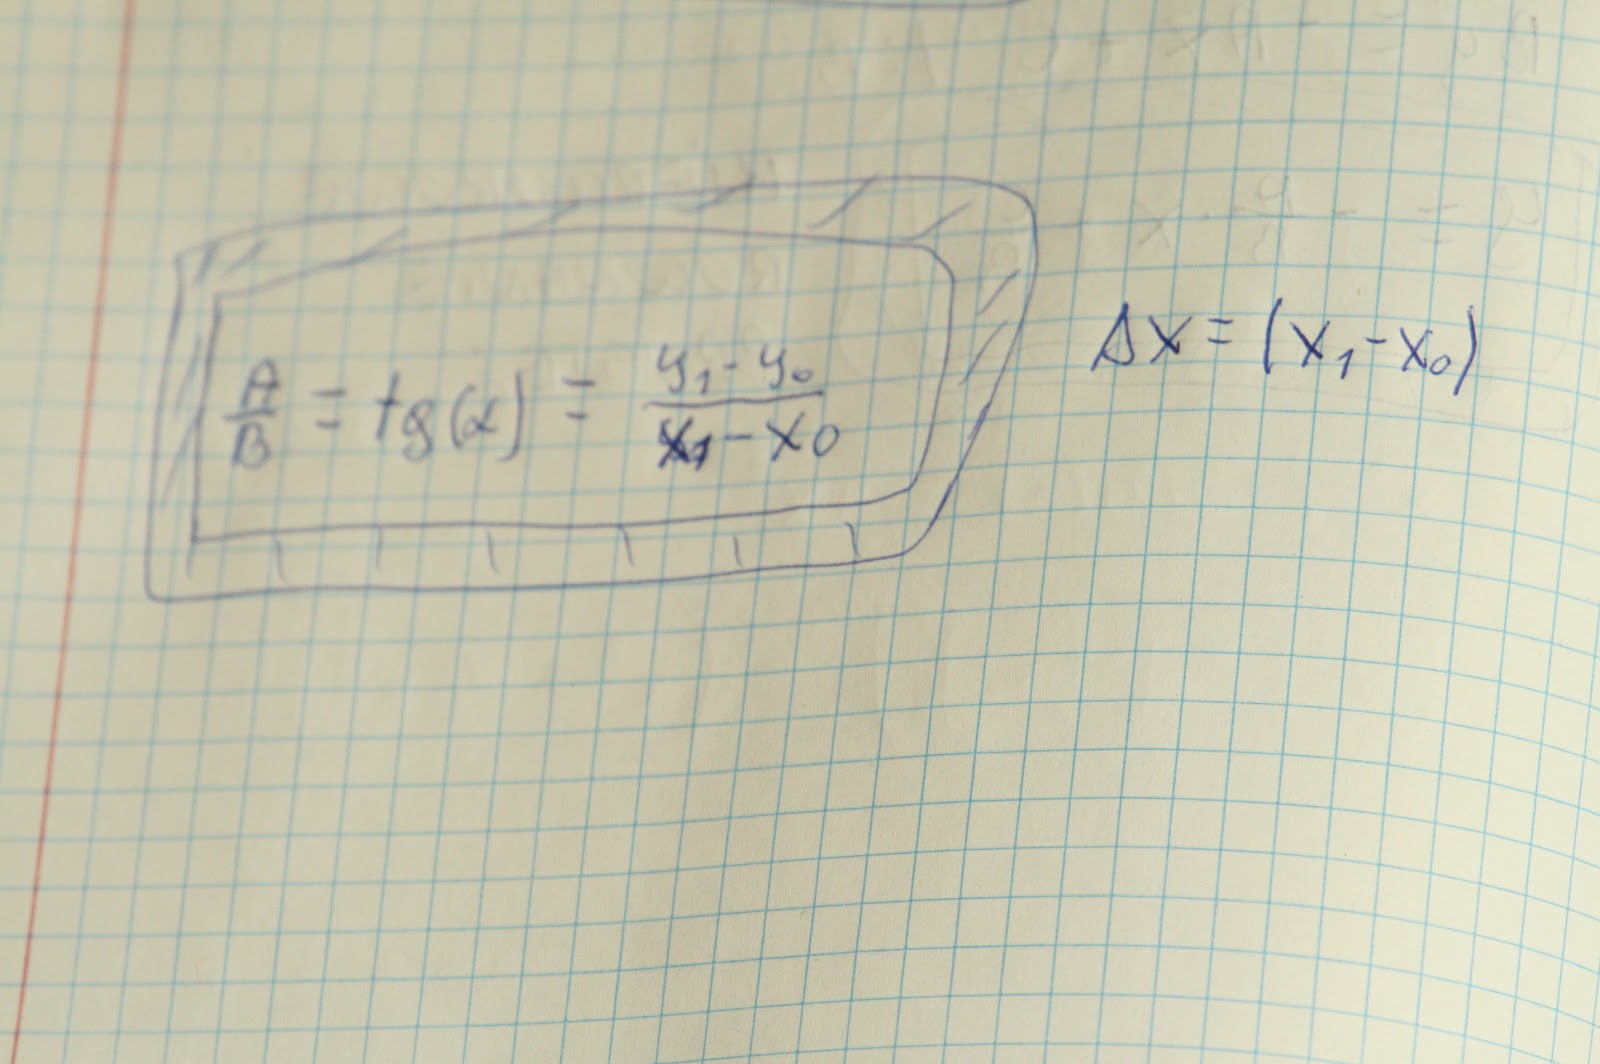 A/B = tg(α) = (y₁ - y₀)/(x₁ - x₀)
Δx = (x₁ - x₀)